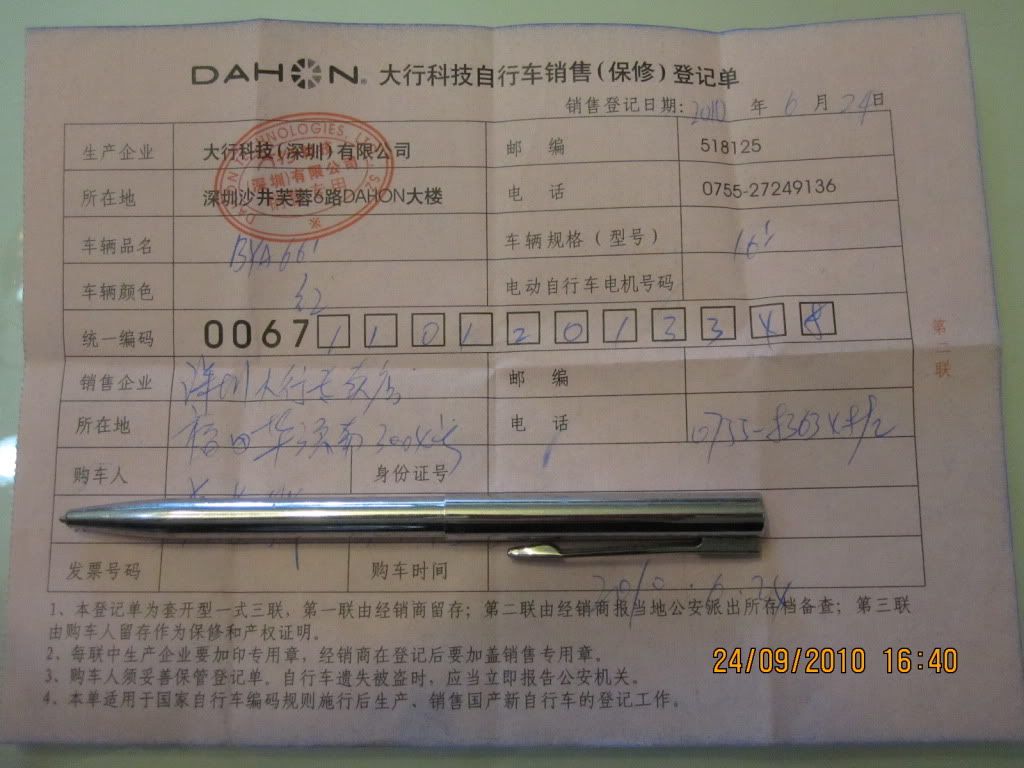 DAHON® 大行科技自行车销售(保修)登记单
销售登记日期: 2010 年 6 月 24 日
生产企业 大行科技(深圳)有限公司 邮 编 518125
所在地 深圳沙井芙蓉6路DAHON大楼 电 话 0755-27249136
TECHNOLOGIES
(深圳)有限公司
车辆品名 BYA66 车辆规格(型号) 16
车辆颜色 红 电动自行车电机号码
统一编码 0067 1 1 0 1 2 0 1 3 3 4
销售企业 深圳大行专卖店 邮 编
所在地 福田华强南 电 话 0755-8363
购车人 身份证号
发票号码 购车时间 2010.6.24
第二联
1、本登记单为套开型一式三联,第一联由经销商留存;第二联由经销商报当地公安派出所存档备查;第三联
由购车人留存作为保修和产权证明。
2、每联中生产企业要加印专用章,经销商在登记后要加盖销售专用章。
3、购车人须妥善保管登记单。自行车遗失被盗时,应当立即报告公安机关。
4、本单适用于国家自行车编码规则施行后生产、销售国产新自行车的登记工作。
24/09/2010 16:40